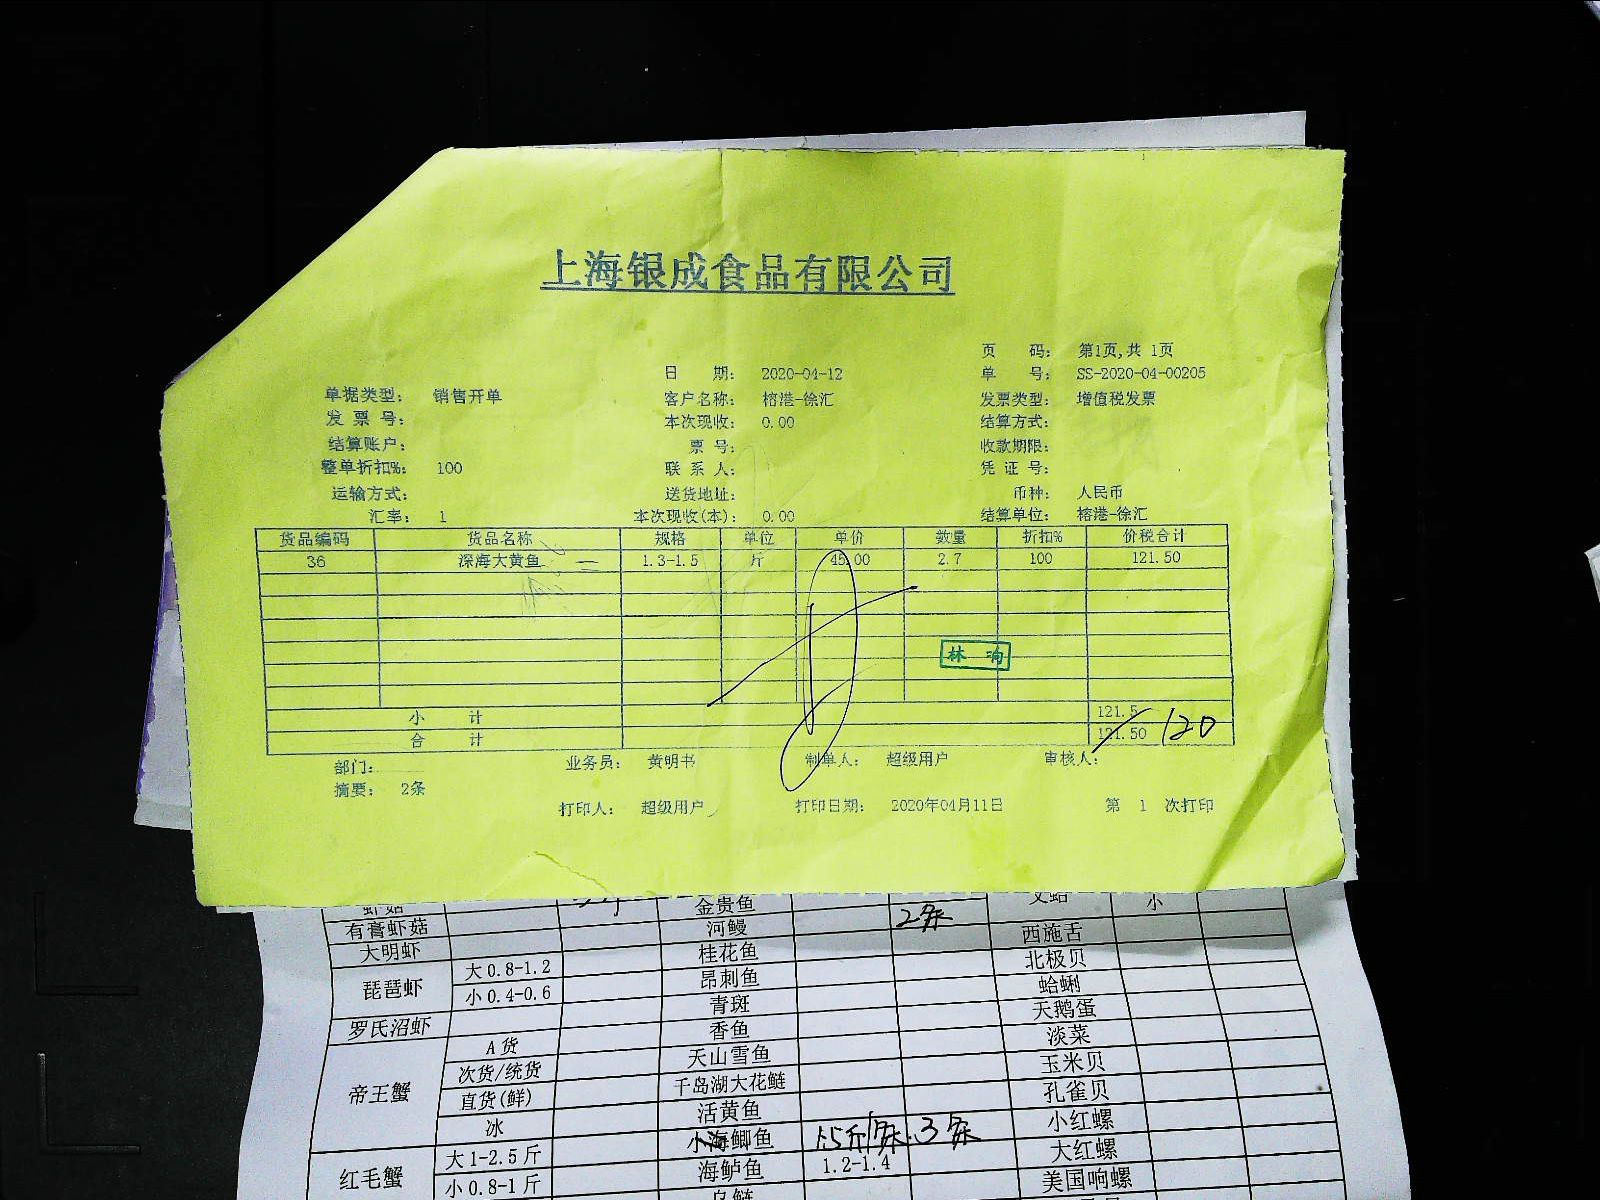 上海银成食品有限公司
页 码： 第1页,共 1页
日 期： 2020-04-12 单 号： SS-2020-04-00205
单据类型： 销售开单 客户名称： 榕港-徐汇 发票类型： 增值税发票
发 票 号： 本次现收： 0.00 结算方式：
结算账户： 票 号： 收款期限：
整单折扣%： 100 联 系 人： 凭 证 号：
运输方式： 送货地址： 币种： 人民币
汇率： 1 本次现收(本)： 0.00 结算单位： 榕港-徐汇
货品编码 货品名称 规格 单位 单价 数量 折扣% 价税合计
36 深海大黄鱼 1.3-1.5 斤 45.00 2.7 100 121.50
林
小 计 121.5
合 计 121.50 120
部门： 业务员： 黄明书 制单人： 超级用户 审核人：
摘要： 2条
打印人： 超级用户 打印日期： 2020年04月11日 第 1 次打印
虾菇 金贵鱼 文蛤 小
有膏虾菇 河鳗 2条 西施舌
大明虾 桂花鱼 北极贝
琵琶虾 大0.8-1.2 昂刺鱼 蛤蜊
小0.4-0.6 青斑 天鹅蛋
罗氏沼虾 香鱼 淡菜
帝王蟹 A货 天山雪鱼 玉米贝
次货/统货 千岛湖大花鲢 孔雀贝
直货(鲜) 活黄鱼 小红螺
冰 小海鲫鱼 1.5斤/条.3条 大红螺
红毛蟹 大1-2.5斤 海鲈鱼 1.2-1.4 美国响螺
小0.8-1斤 乌鲢